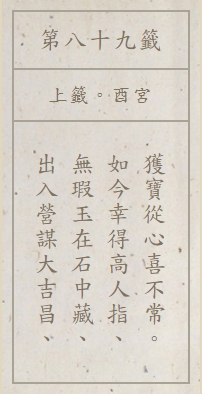 第八十九籤
上籤。酉宮
出入營謀大吉昌、
無瑕玉在石中藏、
如今幸得高人指、
獲寶從心喜不常。